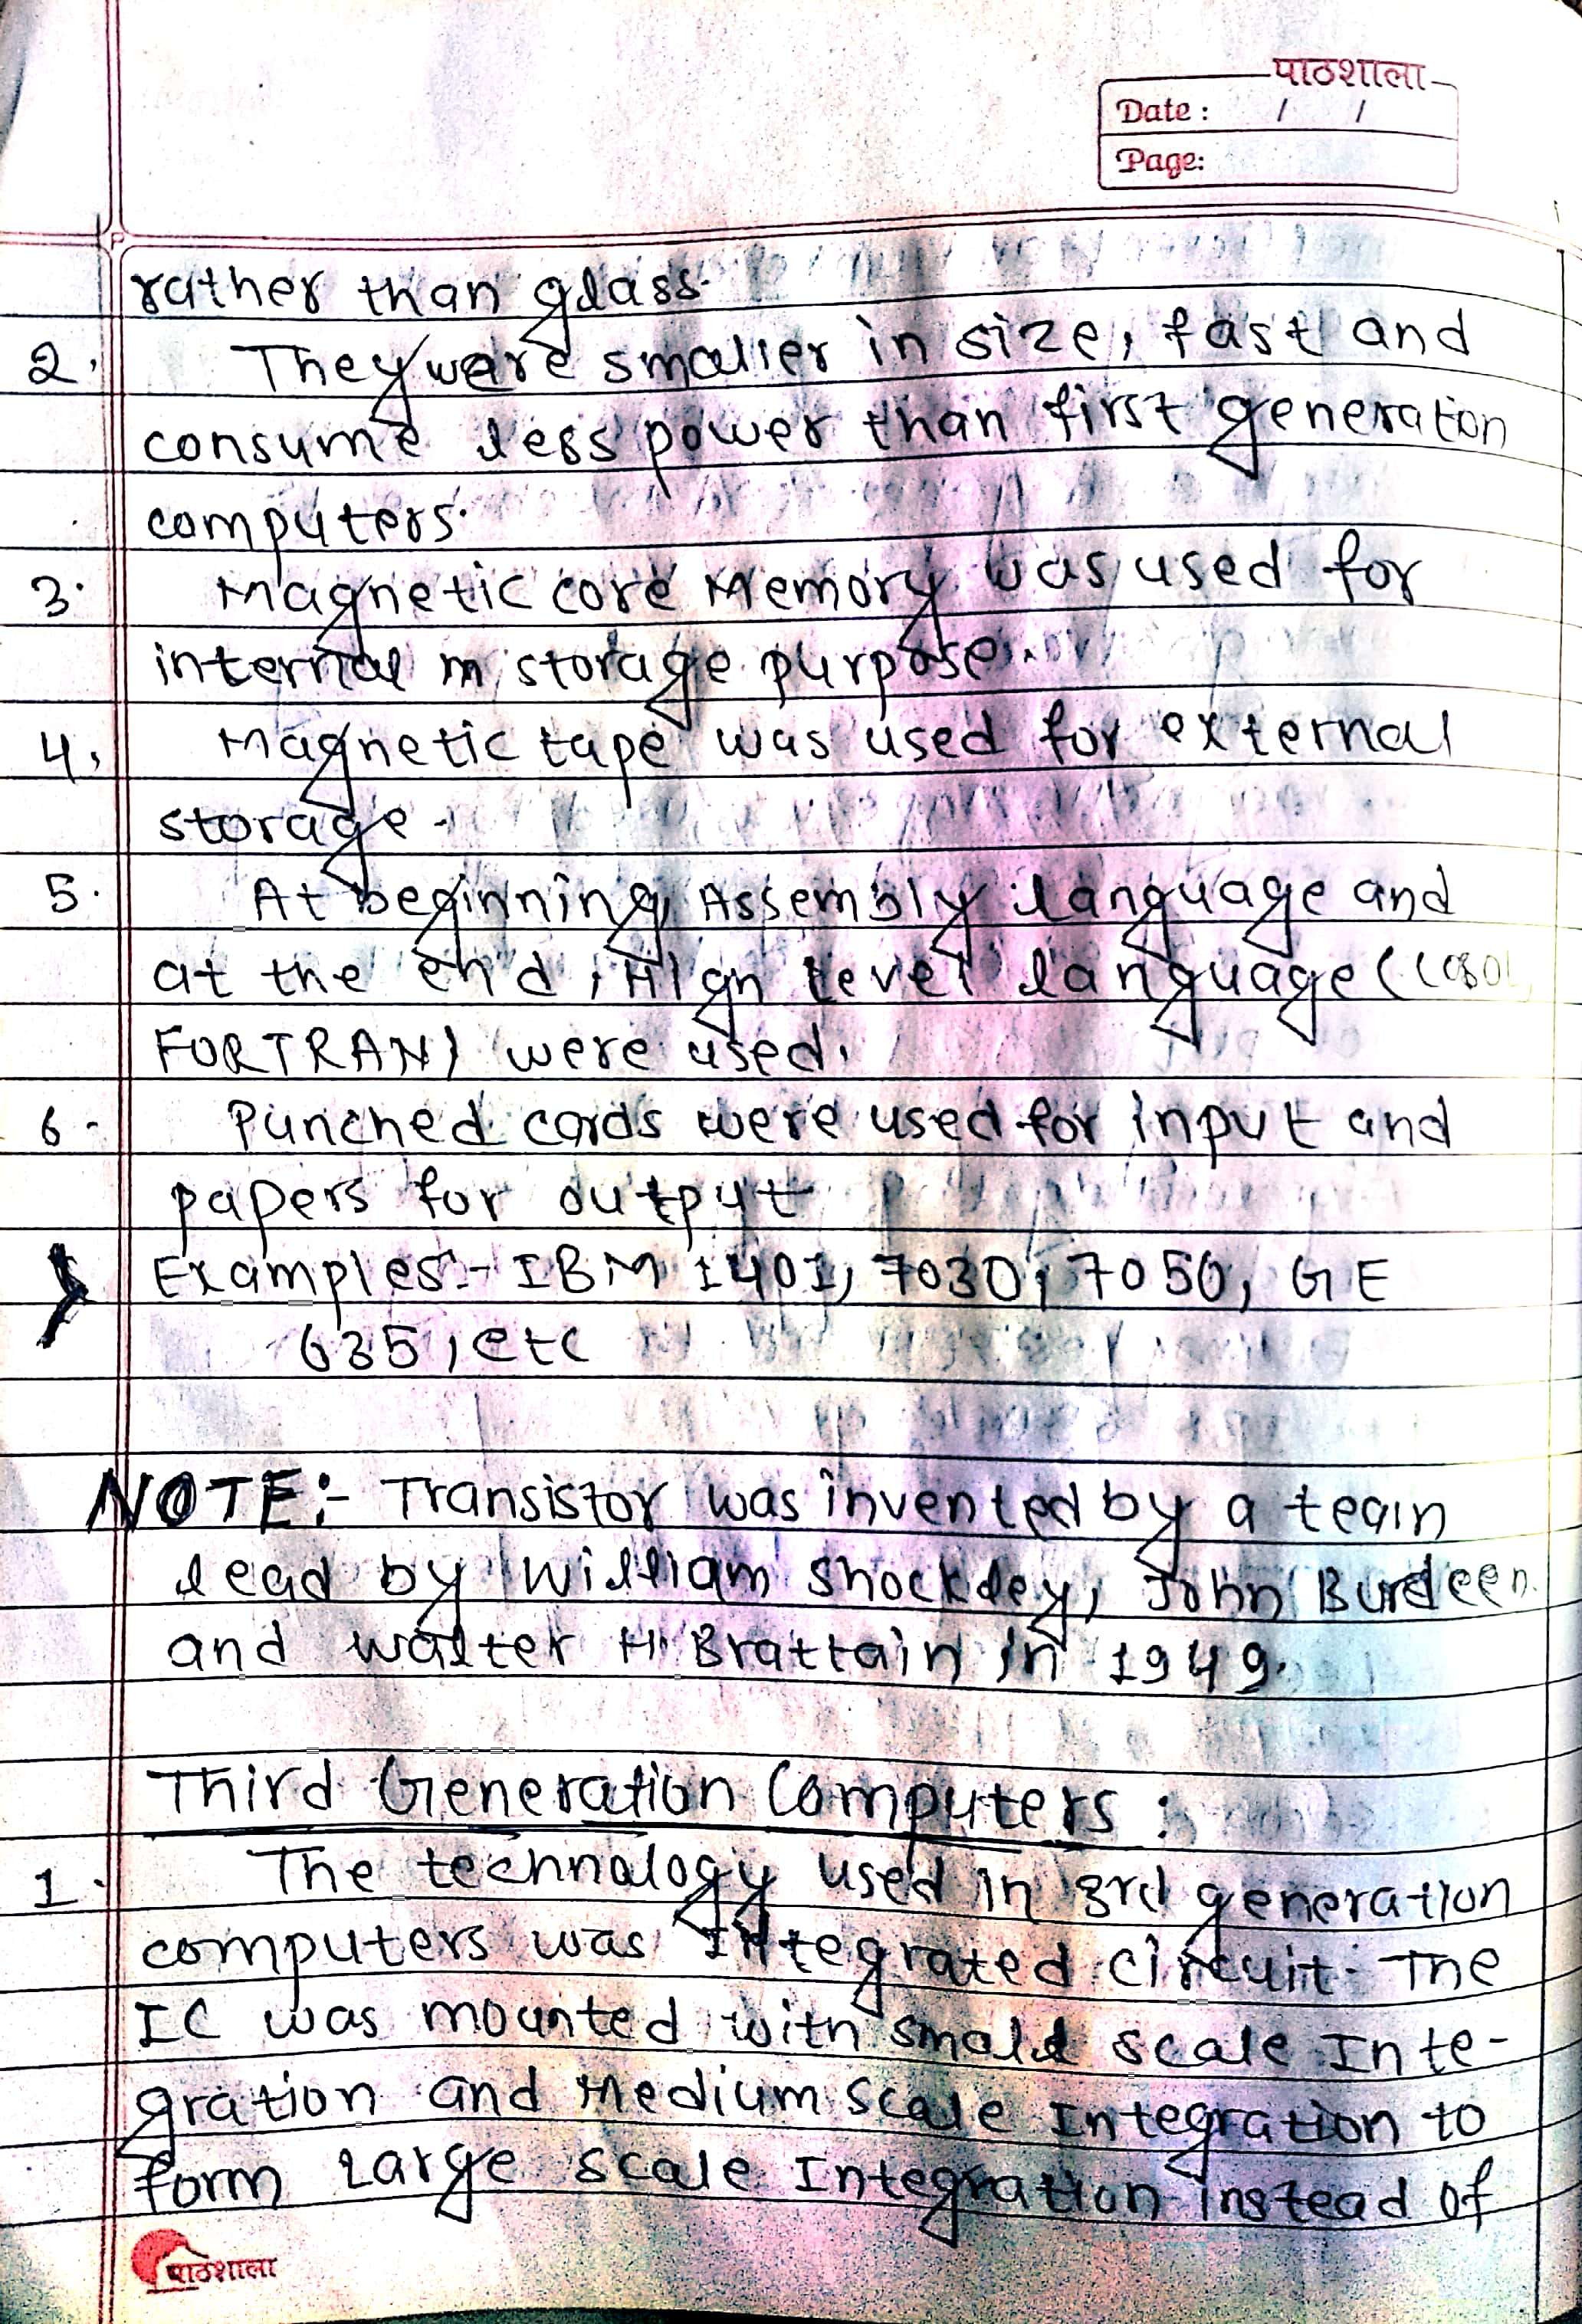 पाठशाला
Date : / /
Page:
rather than glass.
2. They were smaller in size, fast and
consume less power than first generation
computers.
3. Magnetic core Memory was used for
internal m storage purpose.
4. Magnetic tape was used for external
storage.
5. At beginning, Assembly language and
at the end, High level language (COBOL,
FORTRAN) were used.
6. Punched cards were used for input and
papers for output
Examples:- IBM 1401, 7030, 7050, GE
635, etc
NOTE:- Transistor was invented by a team
lead by William Shockley, John Burdeen
and Walter H. Brattain in 1949.
Third Generation Computers :
1. The technology used in 3rd generation
computers was Integrated circuit. The
IC was mounted with small scale Inte-
gration and Medium Scale Integration to
form Large scale Integration instead of
पाठशाला